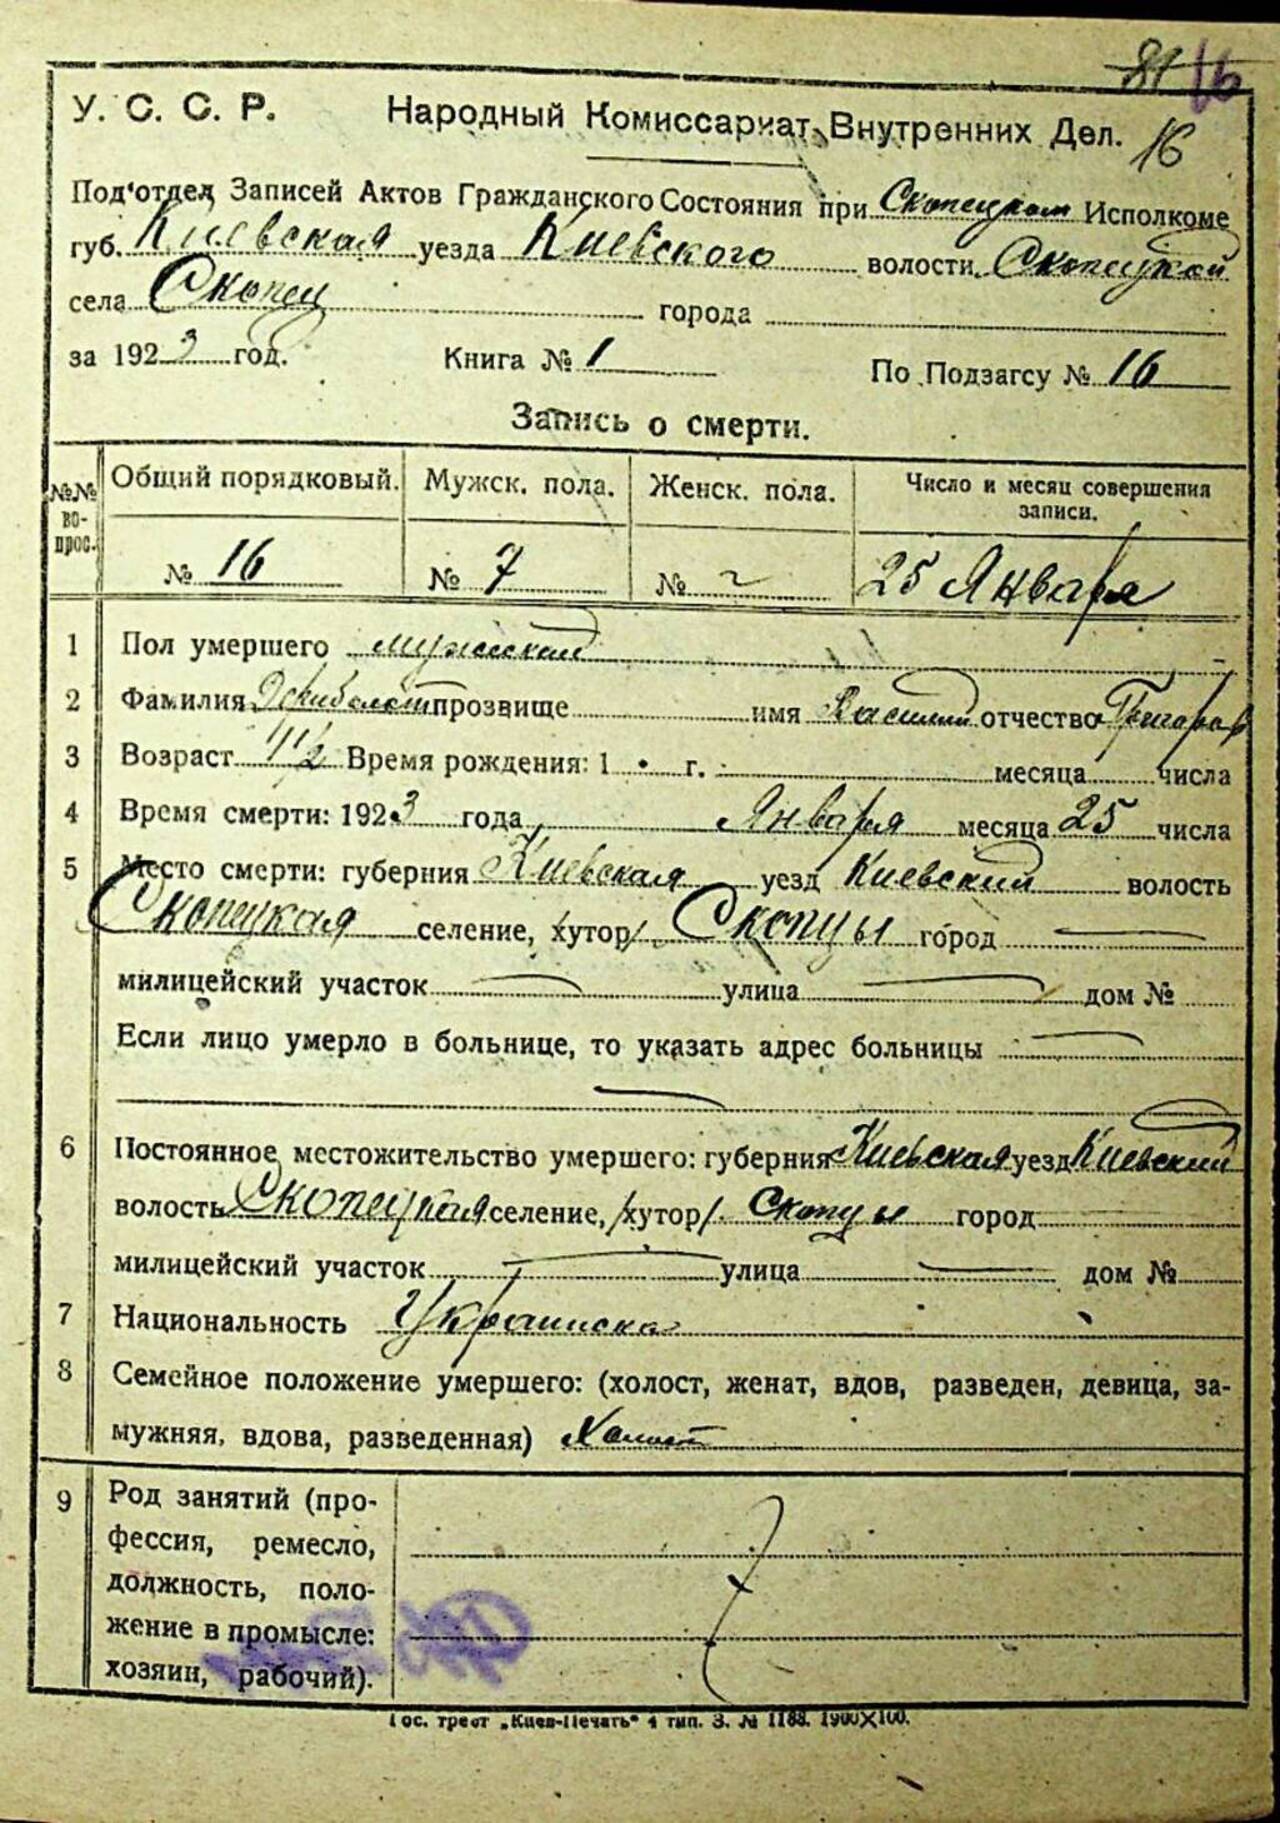 81 16
У. С. С. Р. Народный Комиссариат Внутренних Дел. 16
Под'отдел Записей Актов Гражданского Состояния при Скопецком Исполкоме
губ. Киевская уезда Киевского волости Скопецкой
села Скопец города
за 1923 год. Книга № 1 По Подзагсу № 16
Запись о смерти.
№№ вопрос. Общий порядковый. Мужск. пола. Женск. пола. Число и месяц совершения записи.
№ 16 № 7 № 25 Января
1 Пол умершего мужской
2 Фамилия прозвище имя Василий отчество Григоров
3 Возраст 1 1/2 Время рождения: 1 г. месяца числа
4 Время смерти: 1923 года Января месяца 25 числа
5 Место смерти: губерния Киевская уезд Киевский волость
Скопецкая селение, хутор/ Скопцы город —
милицейский участок — улица — дом №
Если лицо умерло в больнице, то указать адрес больницы —
—
6 Постоянное местожительство умершего: губерния Киевская уезд Киевский
волость Скопецкая селение, /хутор/ Скопцы город
милицейский участок — улица — дом №
7 Национальность Украинска
8 Семейное положение умершего: (холост, женат, вдов, разведен, девица, за-
мужняя, вдова, разведенная) Холост
9 Род занятий (про-
фессия, ремесло,
должность, поло-
жение в промысле:
хозяин, рабочий).
Гос. трест „Киев-Печать" 4 тип. З. № 1188. 1900×100.